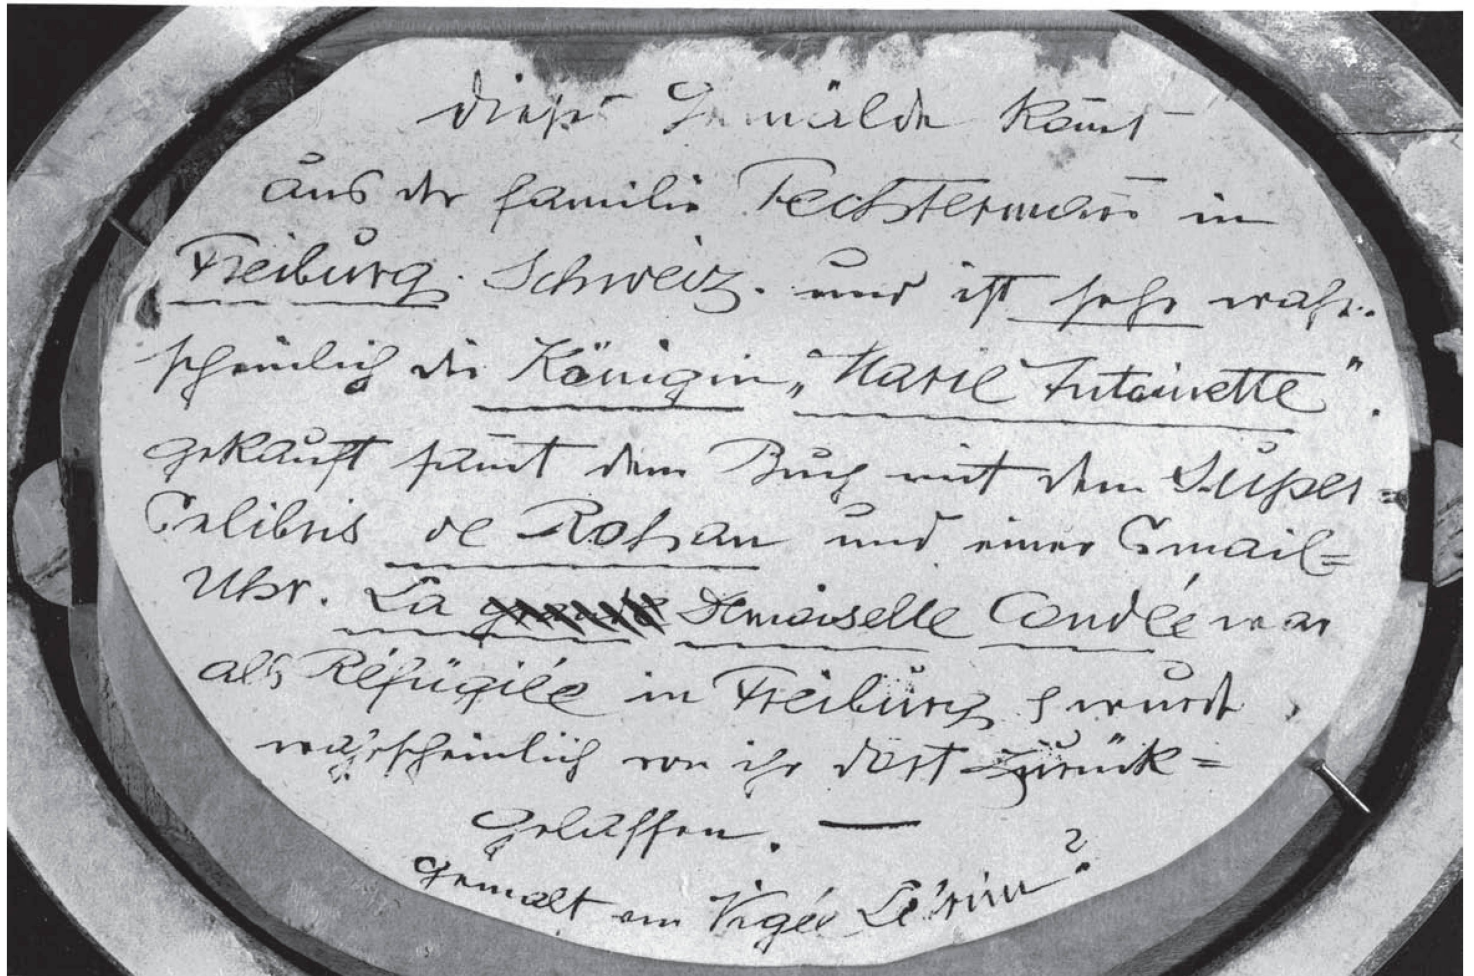 Dieses Gemälde kom̄t
aus der Familie Techtermān in
Freiburg. Schweiz. und ist sehr wahr-
scheinlich die Königin „Marie Antoinette“.
gekauft sam̄t dem Buch mit dem Super=
Exlibris de Rohan und einer Email=
Uhr. La grande Demoiselle Condée war
als Réfügiée in Freiburg & wurde
wahrscheinlich von ihr dort zurück=
gelassen. —
gemalt von Vigée Lebrun?